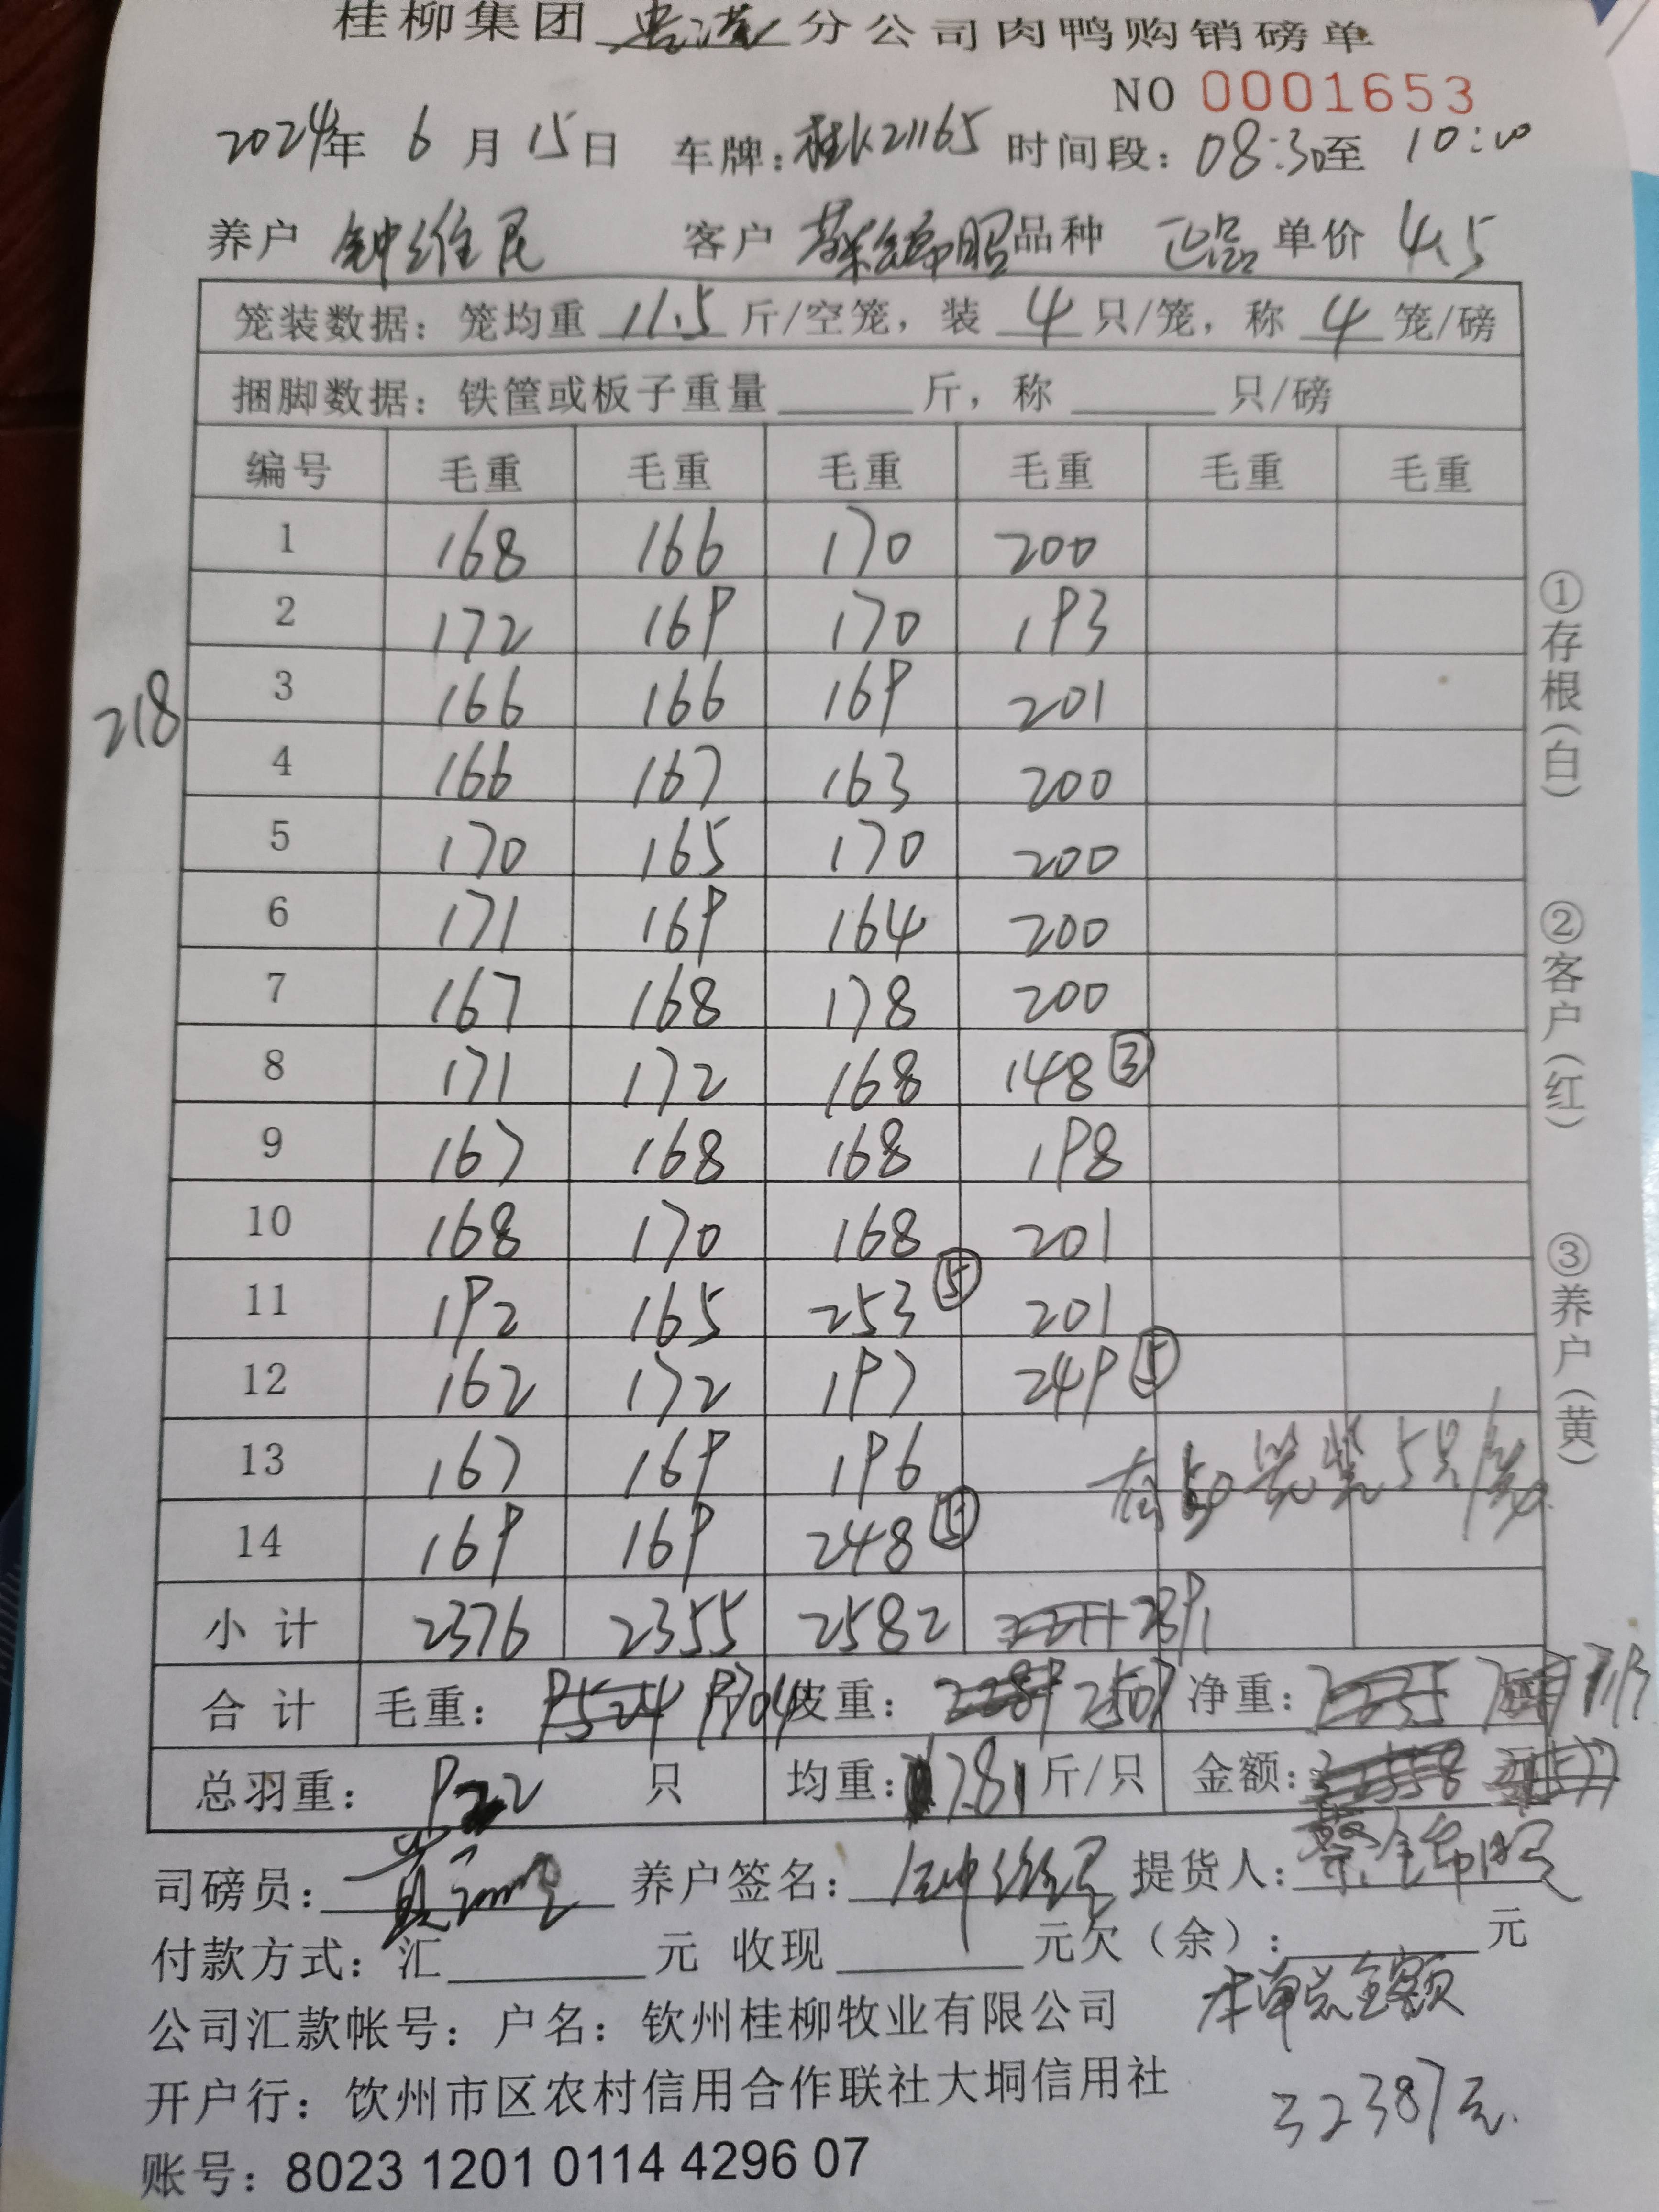 桂柳集团 贵港 分公司肉鸭购销磅单
NO 0001653
2024年 6 月 15日 车牌：桂K21165 时间段：08:30至 10:00
养户 钟维昆 客户 蔡锦昭 品种 正品 单价 4.5
笼装数据：笼均重 11.5 斤/空笼，装 4 只/笼，称 4 笼/磅
捆脚数据：铁筐或板子重量 斤，称 只/磅
编号 毛重 毛重 毛重 毛重 毛重 毛重
1 168 166 170 200
2 172 169 170 193
3 166 166 169 201
218
4 166 167 163 200
5 170 165 170 200
6 171 169 164 200
7 167 168 178 200
8 171 172 168 148 ③
9 167 168 168 198
10 168 170 168 201
11 192 165 253 ⑤ 201
12 162 172 197 249 ⑤
13 167 169 196
有50笼装5只/笼
14 169 169 248 ⑤
小计 2376 2355 2582 2391
合计 毛重： 9524 9704 皮重： 2289 2507 净重： 7235 7197
总羽重： 922 只 均重： 7.81 斤/只 金额： 32558
司磅员： 养户签名： 钟维昆 提货人： 蔡锦昭
付款方式：汇 元 收现 元欠（余）： 元
本单总金额
公司汇款帐号：户名：钦州桂柳牧业有限公司
开户行：饮州市区农村信用合作联社大垌信用社
32387元.
账号：8023 1201 0114 4296 07
①存根（白）
②客户（红）
③养户（黄）